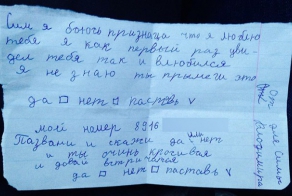 Сим я боюсь признаца что я люблю
тебя я как первый раз цви-
дел тебя так и влюбился
я не знаю ты прымеги это
да □ нет □ паставь v
мой номер 8916
Пазвани и скажи да или нет
и ты очинь крочивая
и довай встричатся
да □ нет □ паставь v
От
для Симы
Владимира